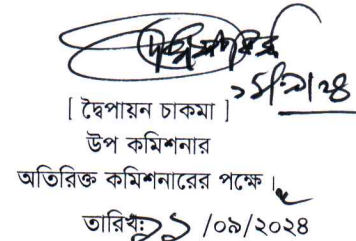 [ দ্বৈপায়ন চাকমা ]
উপ কমিশনার
অতিরিক্ত কমিশনারের পক্ষে।
তারিখ: /০৯/২০২৪